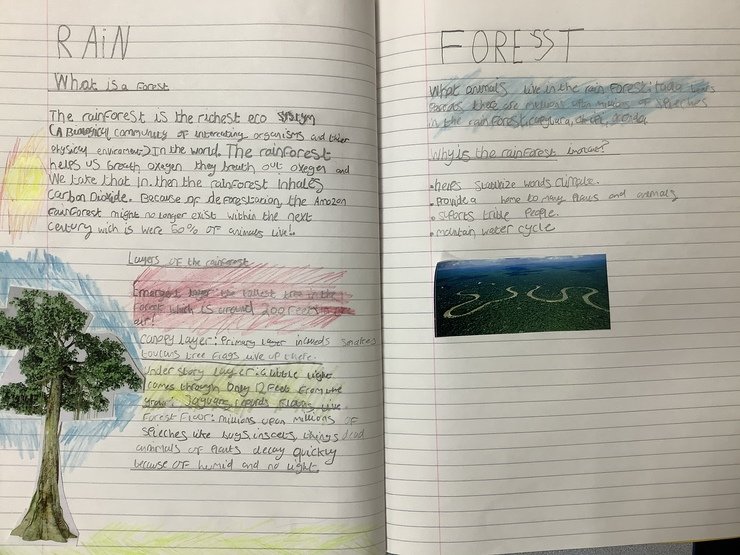 RAiN
What is a Forest
The rainforest is the richest eco system
(A Biological community of interacting organisms and their
physical enviroment) In the world. The rainforest
helps us breath oxegen they breath out oxegen and
We take that in. then the rainforest Inhales
Carbon Dioxide. Because of deforestarion, the Amazon
rainforest might no longer exist within the next
Century wich is were 50% of animals live!.
Layers of the rainforest
Emergent layer the tallest tree in the
forest which is around 200 feet in
air!
Canopy Layer: Primary layer snakes
toucans tree frogs live up there.
under story layer: Little light
comes through only 12 feet from the
Jaguars live
Forest Floor: millions upon millions of
speches like bugs, insects, things dead
annimals of Plants decay quickly
because of humid and no light
FORESST
What animals live in the rain forest:
there are millions millions of speeches
in the rain forest
Why is the rainforest
• helps stabilize words climate.
• Provide a home to many Plants and animals
• suports trible People.
• maintain water cycle